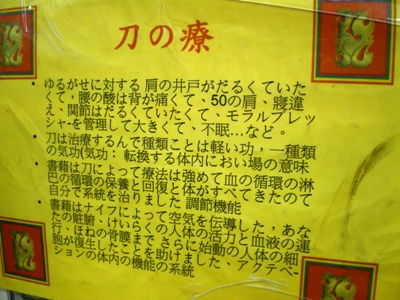 刀の療
• ゆるがせに対する 肩の井戸がだるくていた
くて，腰の酸は背が痛くて、50の肩、寝違
え、関節はだるくていたくて、モラルプレッ
シャ-を管理して大きくて、不眠...など。
• 刀は治療するんで種類ことは軽い功，一種類
の気功(気功： 転換する体内におい場の意味
• 書籍は刀によって療法は強めて血の循環の淋
巴の循環の保養と回復と体がすべてきたので
自分で系統を治りました 調節機能
• 書籍はナイフによって空気を伝導した，あな
たの粃腑、けいらくの人体の活力と血液の運
行、ほねの骨膜まで さらに始動の人体の細
胞が復生したことを助けました、アクテベ-
ションの体内の機能の系統